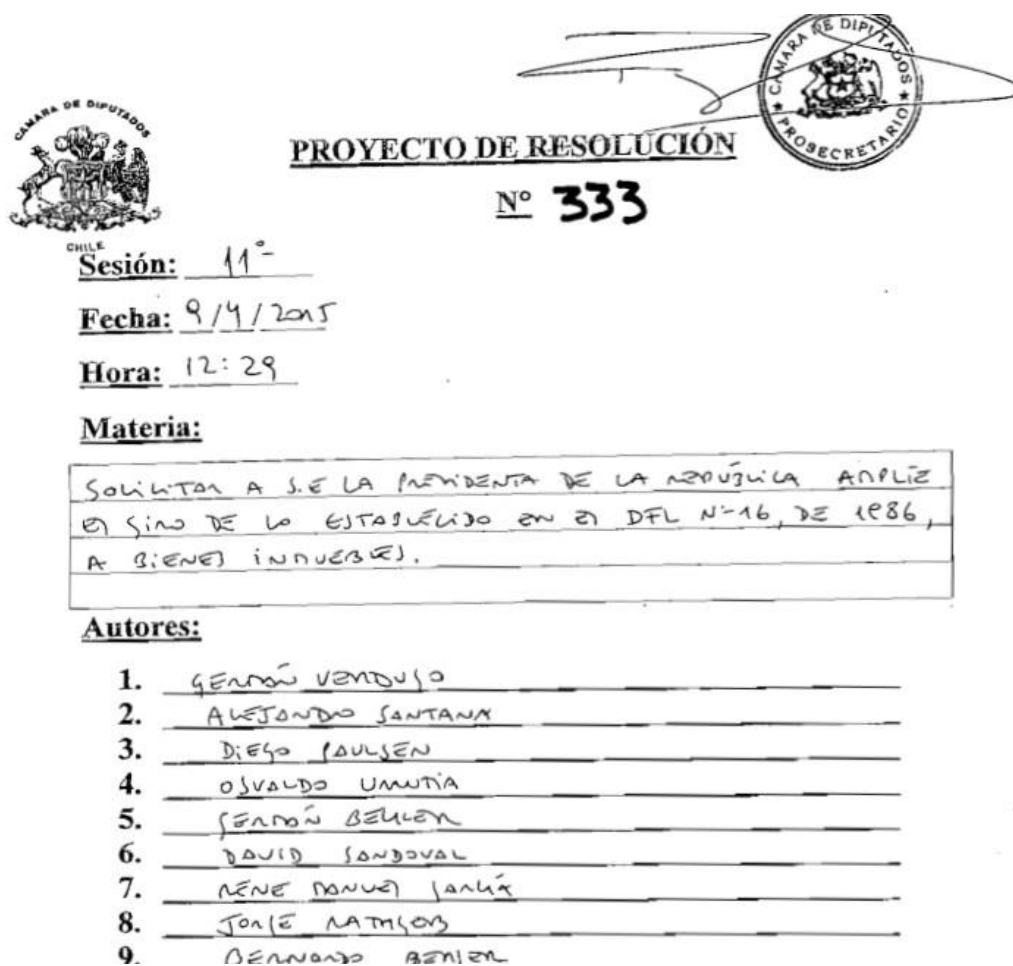 CAMARA DE DIPUTADOS
★ PROSECRETARIO ★
CAMARA DE DIPUTADOS
CHILE
PROYECTO DE RESOLUCIÓN
N° 333
Sesión: 11°-
Fecha: 9/4/2015
Hora: 12:29
Materia:
SOLICITAR A S.E LA PRESIDENTA DE LA REPÚBLICA AMPLIE
El GIRO DE LO ESTABLECIDO EN El DFL N°-16, DE 1986,
A BIENES INMUEBLES.
Autores:
1. GERMÁN VERDUGO
2. ALEJANDRO SANTANA
3. DIEGO PAULSEN
4. OSVALDO URRUTIA
5. GERMÁN BECKER
6. DAVID SANDOVAL
7. RENÉ MANUEL GARCÍA
8. JORGE RATHGEB
9. BERNARDO BERGER